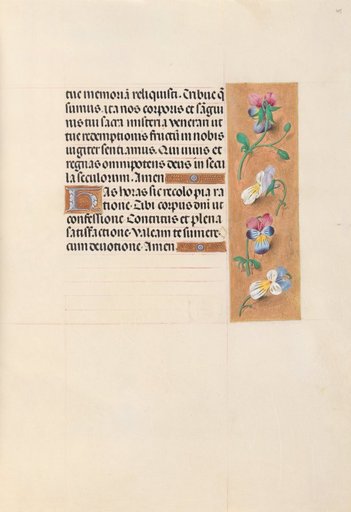 tue memoriã reliquisti. Tribue q̃
sumus. ita nos corporis et sãgui
nis tui sacra misteria venerari ut
tue redemptionis fructũ in nobis
iugiter sentiamus. Qui viuis et
regnas omnipotens deus in secu
la seculorum. Amen
Has horas sic recolo pia ra
tione. Tibi corpus dñi ut
confessione. Contritus et plena
satisfactione. Valeam te sumere.
cum deuotione. Amen.